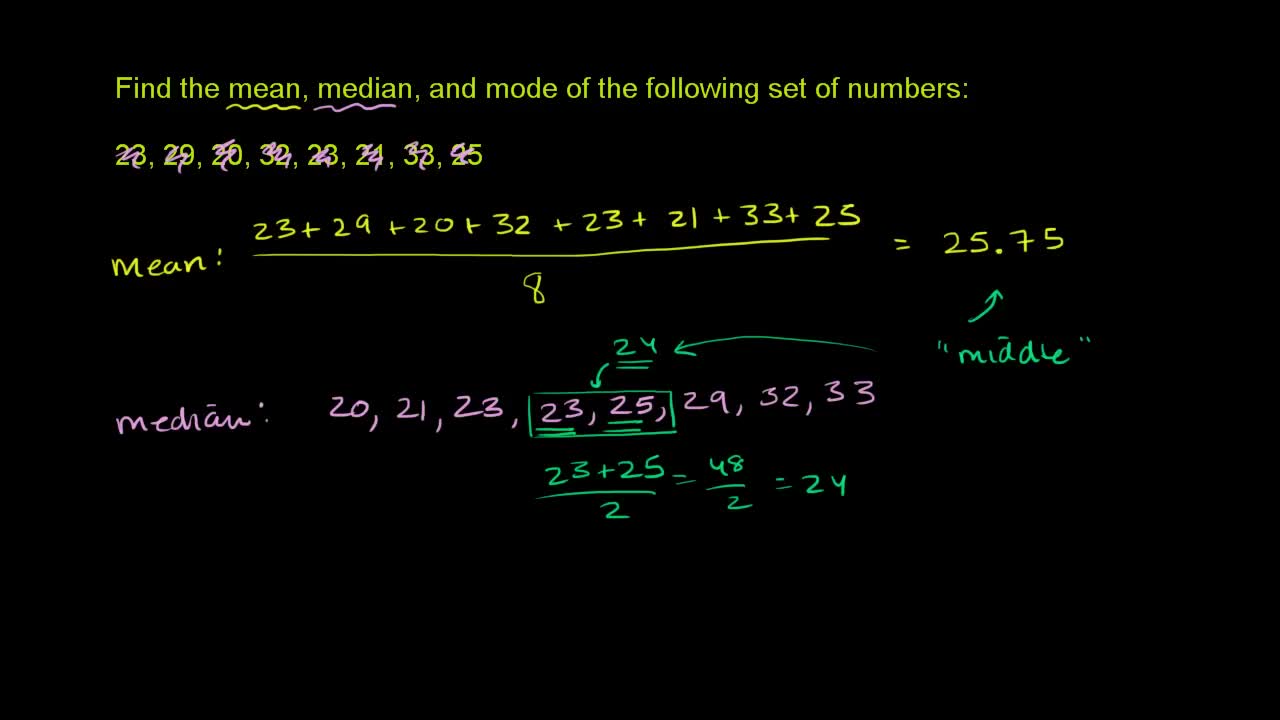 Find the mean, median, and mode of the following set of numbers:
23, 29, 20, 32, 23, 21, 33, 25
mean: 23 + 29 + 20 + 32 + 23 + 21 + 33 + 25 / 8 = 25.75
24
"middle"
median: 20, 21, 23, 23, 25, 29, 32, 33
23 + 25 / 2 = 48 / 2 = 24